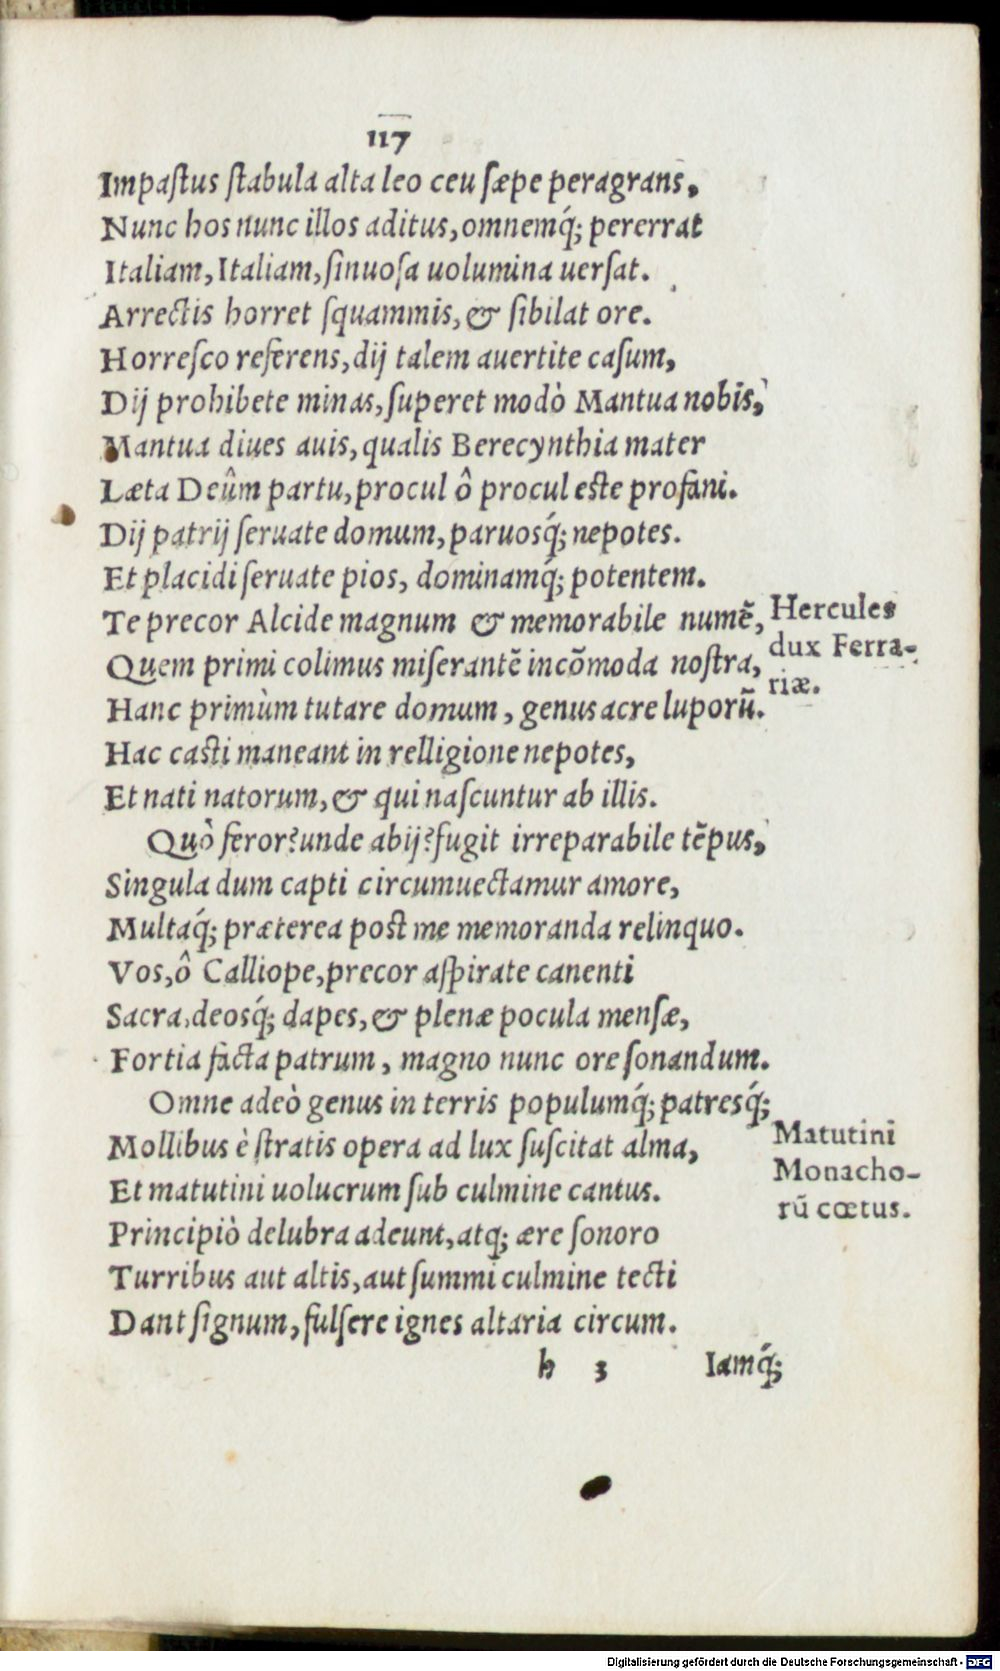 117
Impaſtus ſtabula alta leo ceu ſæpe peragrans,
Nunc hos nunc illos aditus, omnemq́; pererrat
Italiam, Italiam, ſinuoſa uolumina uerſat.
Arrectis horret ſquammis, & ſibilat ore.
Horreſco referens, dij talem auertite caſum,
Dij prohibete minas, ſuperet modò Mantua nobis,
Mantua diues auis, qualis Berecynthia mater
Læta Deûm partu, procul ô procul eſte profani.
Dij patrij ſeruate domum, paruosq́; nepotes.
Et placidi ſeruate pios, dominamq́; potentem.
Te precor Alcide magnum & memorabile numẽ,
Hercules
dux Ferra-
riæ.
Quem primi colimus miſerantẽ incõmoda noſtra,
Hanc primùm tutare domum, genus acre luporũ.
Hac caſti maneant in relligione nepotes,
Et nati natorum, & qui naſcuntur ab illis.
Quò feror? unde abij? fugit irreparabile tẽpus,
Singula dum capti circumuectamur amore,
Multaq́; præterea poſt me memoranda relinquo.
Vos, ô Calliope, precor aſpirate canenti
Sacra, deosq́; dapes, & plenæ pocula menſæ,
Fortia facta patrum, magno nunc ore ſonandum.
Omne adeò genus in terris populumq́; patresq́;
Matutini
Monacho-
rũ cœtus.
Mollibus è ſtratis opera ad lux ſuſcitat alma,
Et matutini uolucrum ſub culmine cantus.
Principiò delubra adeunt, atq; ære ſonoro
Turribus aut altis, aut ſummi culmine tecti
Dant ſignum, fulſere ignes altaria circum.
h 3 Iamq́;
Digitalisierung gefördert durch die Deutsche Forschungsgemeinschaft - DFG